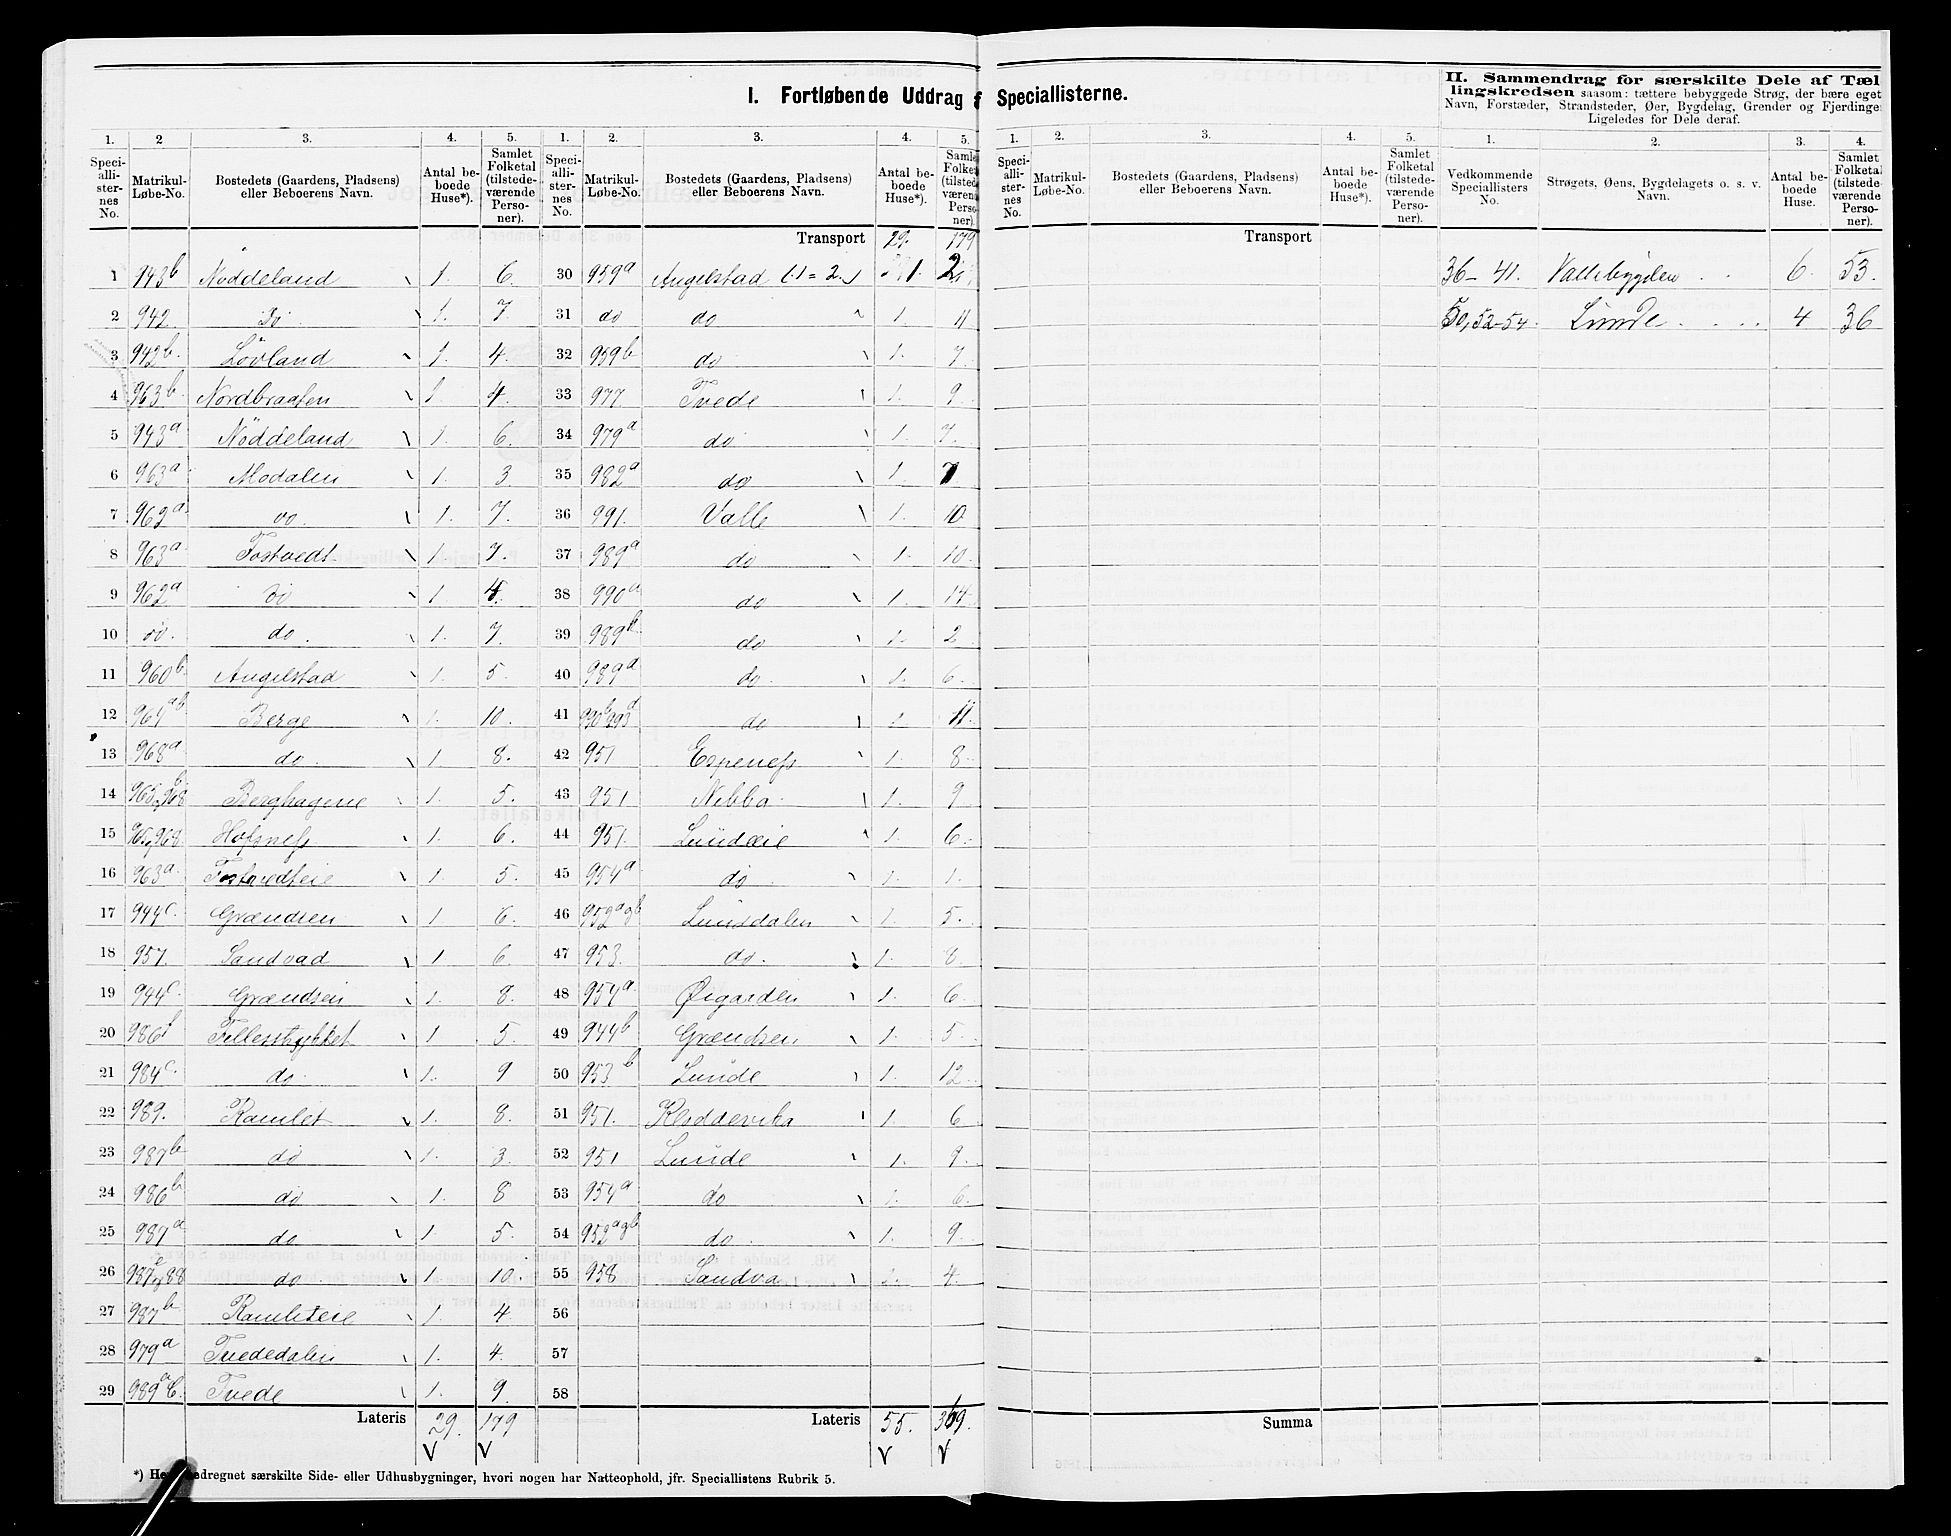 I. Fortløbende Uddrag Speciallisterne.
II. Sammendrag for særskilte Dele af Tæl
lingskredsen saasom: tættere bebyggede Strøg, der bære eget
Navn, Forstæder, Strandsteder, Øer, Bygdelag, Grender og Fjerdinge
Ligeledes for Dele deraf.
1. 2 3. 4. 5. 1. 2. 3. 4. 5.
Speci-alli-ster-nes No. Matrikul-Løbe-No. Bostedets (Gaardens, Pladsens) eller Beboerens Navn. Antal be-boede Huse*). Samlet Folketal (tilstede-værende Perso-ner). Speci-alli-ster-nes No. Matrikul-Løbe-No. Bostedets (Gaardens, Pladsens) eller Beboerens Navn. Antal be-boede Huse*). Samle Folketa (tilsted værend Perso ner)
Transport 29. 179
1 943b Nöddeland 1. 6. 30 959a Angelstad (1=2) 1. 2
2 942 Do 1. 7 31 do do 1. 11
3 942b. Lövland 1. 4. 32 959b do 1. 7
4 963b. Nordbraaten 1 4. 33 977 Tvede 1. 9
5 943a Nöddeland 1. 6. 34 979a do 1. 7.
6 963a. Modalen 1. 3 35 982a do 1. 7
7 962a do. 1. 7. 36 991. Valle 1. 10
8 963a Fostvedt 1. 7. 37 989a do 1. 10.
9 962a do 1 4. 38 990a do 1. 14
10 do. do. 1. 7. 39 989b do 1. 2
11 960b Angelstad 1. 5. 40 989a do. 1. 6.
12 964ab Berge 1. 10. 41 990b 993a do 1. 11.
13 968a do 1. 8. 42 951 Espeness 1. 8
14 965, 968 Berghagene 1. 5. 43 951 Nebba 1. 9
15 965, 968. Hofsness 1. 6. 44 951. Lundeeie 1. 6.
16 963a. Fostvedteie 1. 5. 45 954a do 1. 1.
17 944c. Grændsen 1. 6. 46 952a og b Lunsdalen 1. 5.
18 957. Sandvad 1 6. 47 953. do. 1. 8
19 944c. Grændsen 1. 8. 48 954a Øigarden 1. 6.
20 986f Fellesstykket 1. 5. 49 944b Grændsen 1. 5
21 984c. do 1. 9 50 953b Lunde 1. 12.
22 989. Ramlet 1. 8. 51 951. Kloddevika 1. 6
23 987b do 1. 3. 52 951 Lunde 1. 9.
24 986b do 1. 8 53 954a do 1. 6.
25 987a do 1. 5. 54 952a og b do. 1. 9.
26 987 og 88 do 1. 10. 55 958 Sandva 1. 4.
27 987b Ramleteie 1. 4. 56
28 979a Tvededalen 1. 4. 57
29 989a c. Tvede 1. 9. 58
Lateris 29. 179 Lateris 55. 369.
*) He edregnet særskilte Side- eller Udhusbygninger, hvori nogen har Natteophold, jfr. Speciallistens Rubrik 5.
1. 2. 3. 4. 5. 1. 2. 3. 4.
Speci-alli-ster-nes No. Matrikul-Løbe-No. Bostedets (Gaardens, Pladsens) eller Beboerens Navn. Antal be-boede Huse*). Samlet Folketal (tilstede-værende Perso-ner). Vedkommende Speciallisters No. Strøgets, Øens, Bygdelagets o. s. v. Navn. Antal be-boede Huse. Samlet Folketal (tilstede-værende Perso-ner).
Transport
36-41. Vallebygden 6. 53.
50, 52-54. Lunde 4 36
Summa